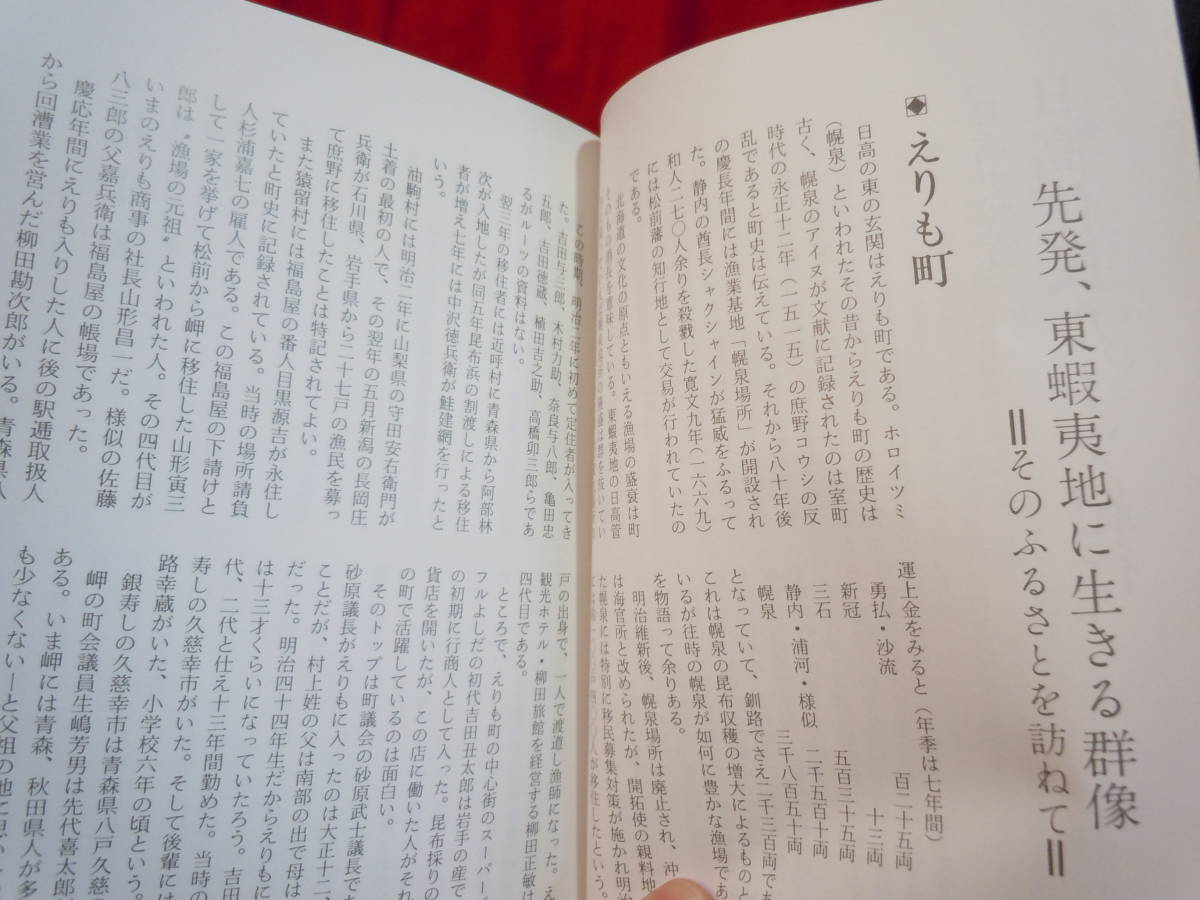 先発、東蝦夷地に生きる群像
＝そのふるさとを訪ねて＝
◆えりも町
日高の東の玄関はえりも町である。ホロイツミ
（幌泉）といわれたその昔からえりも町の歴史は
古く、幌泉のアイヌが文献に記録されたのは室町
時代の永正十二年（一五一五）の庶野コウシの反
乱であると町史は伝えている。それから八十年後
の慶長年間には漁業基地「幌泉場所」が開設され
た。静内の酋長シャクシャインが猛威をふるって
和人二七〇人余りを殺戮した寛文九年（一六六九）
には松前藩の知行地として交易が行われていたの
である。
北海道の文化の原点ともいえる漁場の盛衰は町
そのものの消長を意味している。東蝦夷地の日高管
運上金をみると（年季は七年間）
勇払・沙流 百二十五両
新冠 十三両
三石 五百三十五両
静内・浦河・様似 二千五百十両
幌泉 三千八百五十両
となっていて、釧路でさえ二千三百両であ
これは幌泉の昆布収穫の増大によるものと
いるが往時の幌泉が如何に豊かな漁場であ
を物語って余りある。
明治維新後、幌泉場所は廃止され、沖
は海官所と改められたが、開拓使の親料地
た幌泉には特別に移民募集対策が施かれ明治
〇〇人が移住したという。
この時期、明治二年に初めて定住者が入ってき
た。吉田与三郎、木村力助、奈良与八郎、亀田忠
五郎、吉田徳蔵、植田吉之助、高橋卯三郎らであ
るがルーツの資料はない。
翌三年の移住者には近呼村に青森県から阿部林
次が入地したが同五年昆布浜の割渡しによる移住
者が増え七年には中沢徳兵衛が鮭建網を行ったと
いう。
油駒村には明治二年に山梨県の守田安右衛門が
土着の最初の人で、その翌年の五月新潟の長岡庄
兵衛が石川県、岩手県から二十七戸の漁民を募っ
て庶野に移住したことは特記されてよい。
また猿留村には福島屋の番人目黒源吉が永住し
ていたと町史に記録されている。当時の場所請負
人杉浦嘉七の雇人である。この福島屋の下請けと
して一家を挙げて松前から岬に移住した山形寅三
郎は〝漁場の元祖〟といわれた人。その四代目が
いまのえりも商事の社長山形昌一だ。様似の佐藤
八三郎の父嘉兵衛は福島屋の帳場であった。
慶応年間にえりも入りした人に後の駅逓取扱人
から回漕業を営んだ柳田勘次郎がいる。青森県八
戸の出身で、一人で渡道し漁師になった。え
観光ホテル・柳田旅館を経営する柳田正敏は
四代目である。
ところで、えりも町の中心街のスーパー
フルよしだの初代吉田丑太郎は岩手の産で
の初期に行商人として入った。昆布採りの
貨店を開いたが、この店に働いた人がそれ
の町で活躍しているのは面白い。
そのトップは町議会の砂原武士議長であ
砂原議長がえりもに入ったのは大正十二、
ことだが、村上姓の父は南部の出で母は
だった。明治四十四年生だからえりもに
は十三才くらいになっていたろう。吉田
代、二代と仕え十三年間勤めた。当時の
寿しの久慈幸市がいた。そして後輩には
路幸蔵がいた、小学校六年の頃という。
銀寿しの久慈幸市は青森県八戸久慈の
岬の町会議員生嶋芳男は先代喜太郎
ある。いま岬には青森、秋田県人が多
も少なくない―と父祖の地に思い